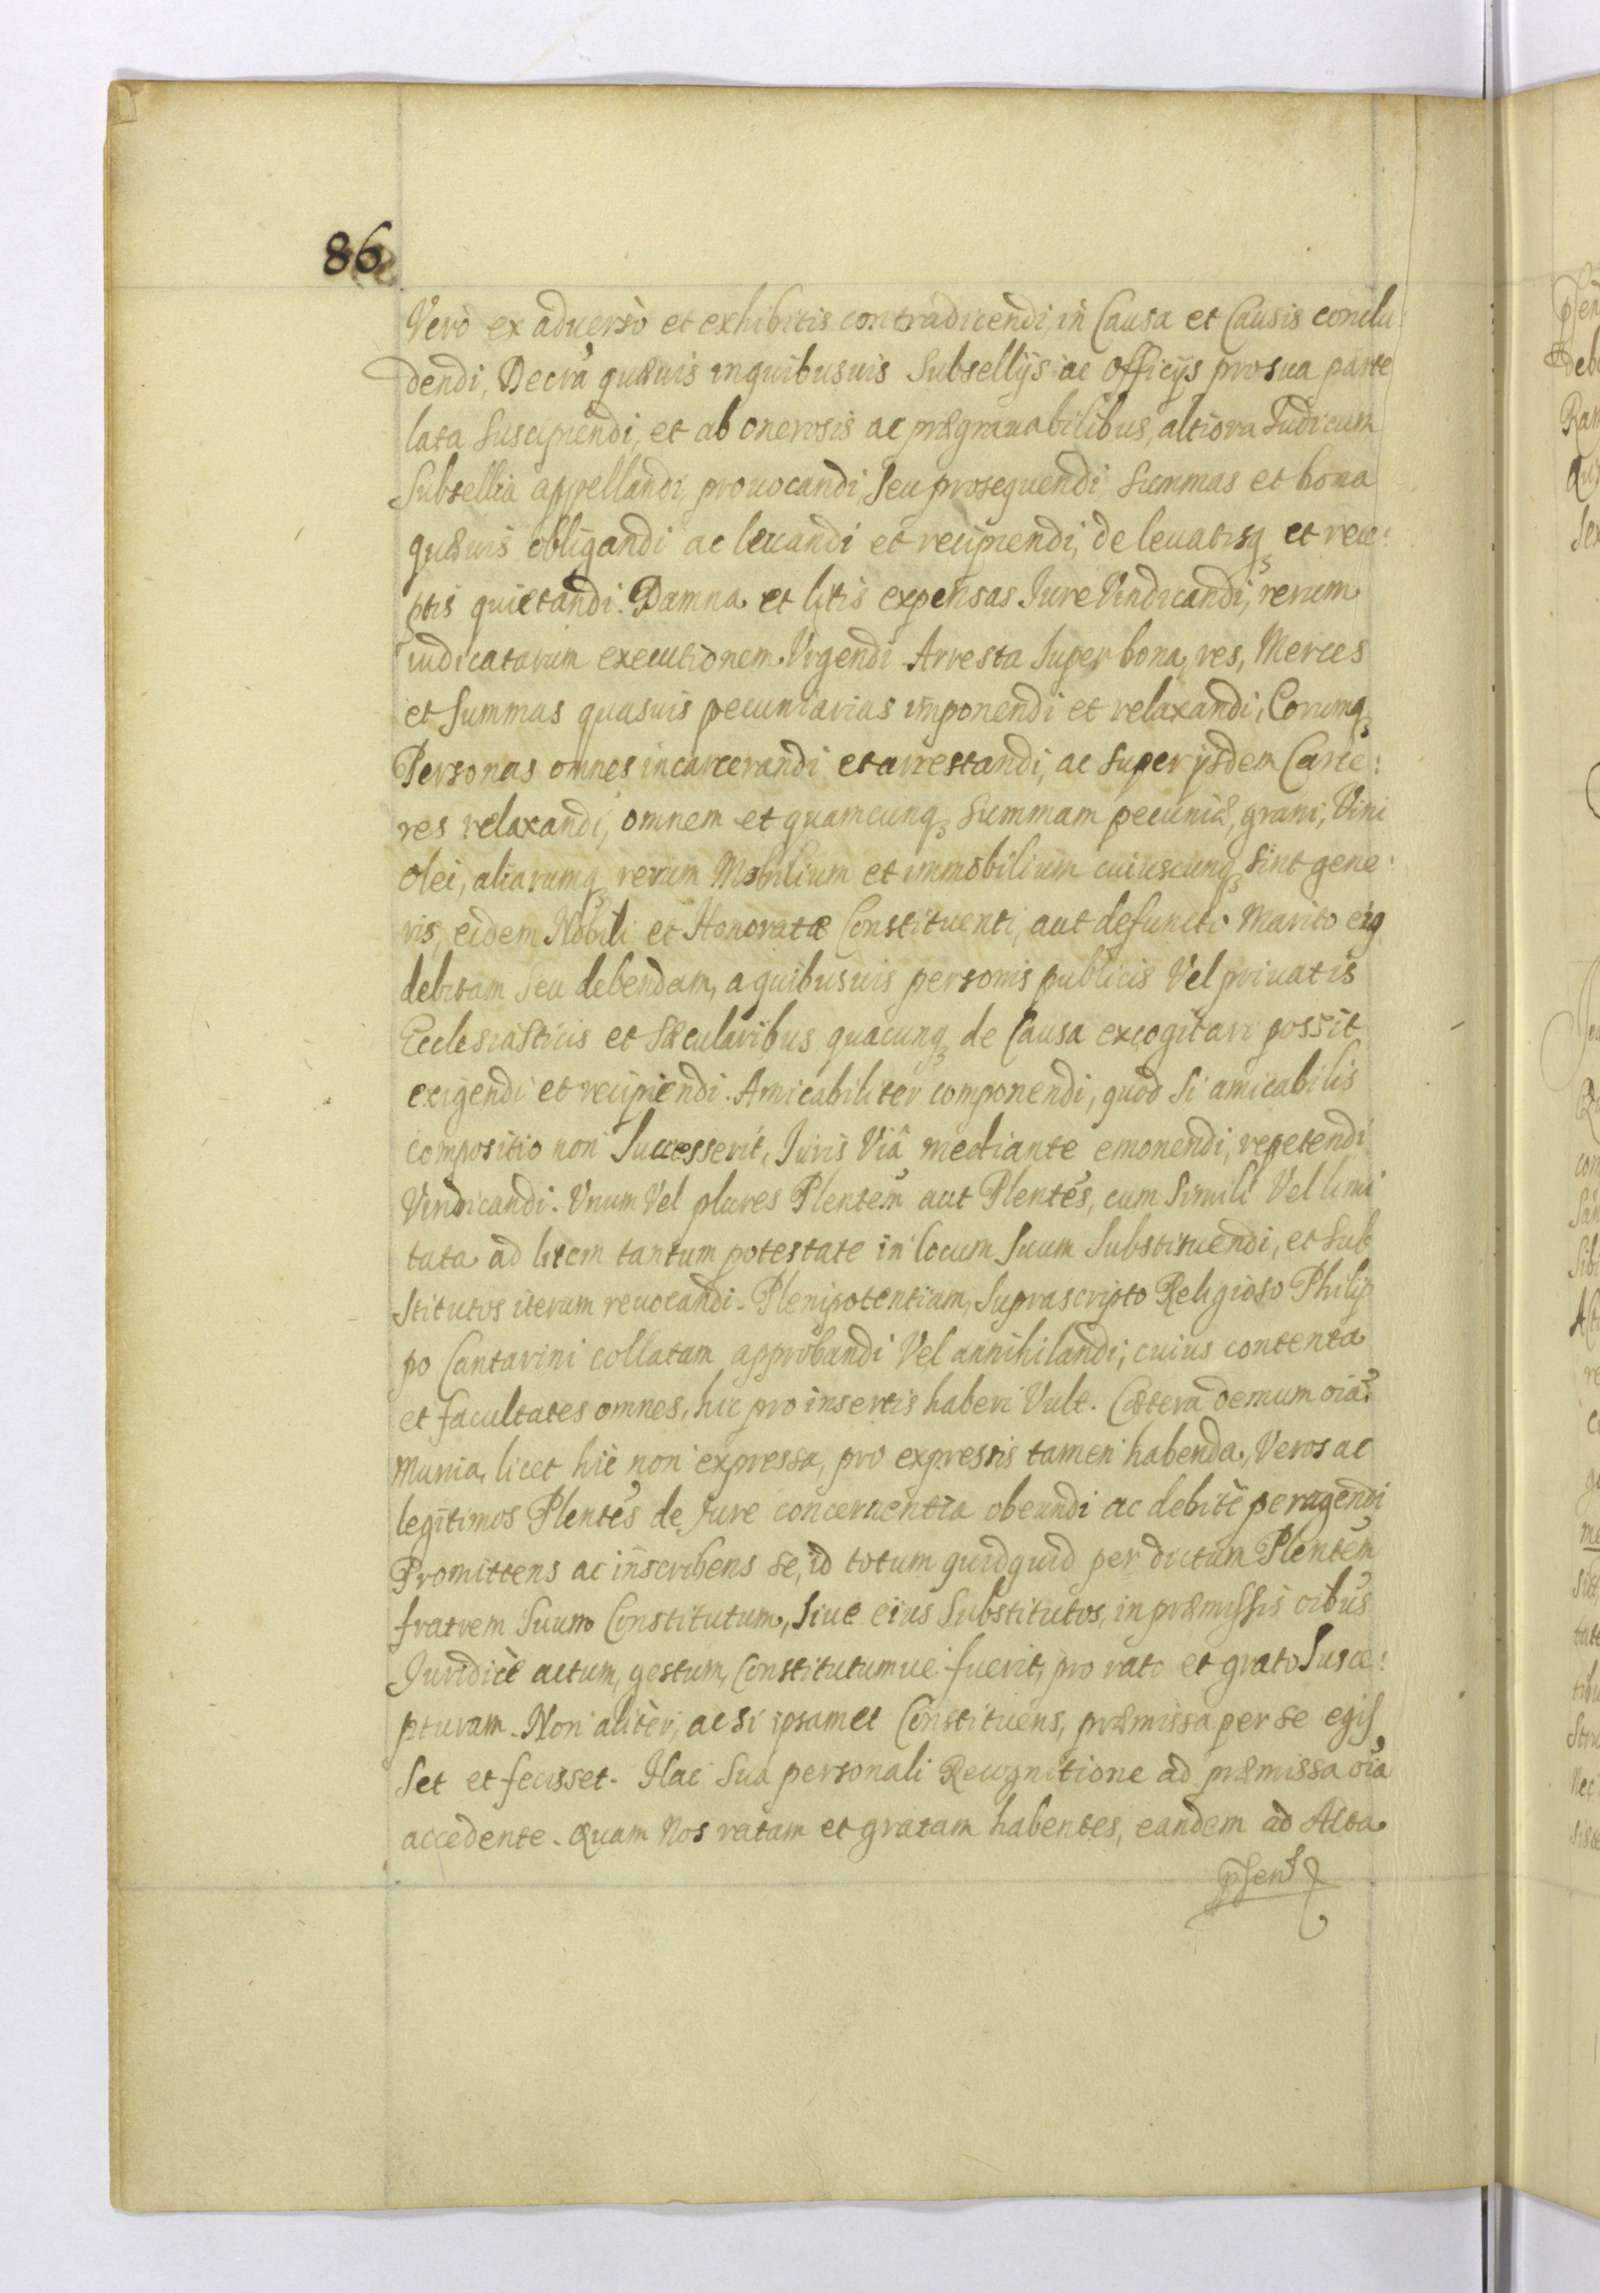 86
Verò ex aduersò et exhibitis contradicendi, in Causa et Causis conclu
dendi, Decra quæuis inquibusuis Subsellijs ac Officijs pro sua parte
lata Suscipiendi, et ab onerosis ac prægrauabilibus, altiora Iudicum
Subsellia appellandi, prouocandi Seu prosequendi Summas et bona
quæuis obligandi ac leuandi et recipiendi, de leuatisq et rece:
ptis quietandi. Damna et litis expensas Iure Vindicandi, rerum
iudicatarum executionem Vrgendi Arresta Super bona, res, Merces
et Summas quasuis pecuniarias imponendi et relaxandi, Eorumq
Personas omnes incarcerandi et arrestandi, ac Super ijsdem Carce:
res relaxandi, omnem et quamcunq Summam pecuniæ, grani, Vini
olei, aliarumq rerum Mobilium et immobilium cuiuscunq Sint gene:
ris, eidem Nobili et Honoratæ Constituenti, aut defuncto Marito eiq
debitam Seu debendam, a quibusuis personis publicis Vel priuatis
Ecclesiasticis et Sæcularibus quacunq de Causa excogitari possit
exigendi et recipiendi. Amicabiliter componendi, quod Si amicabilis
compositio non Successerit, Iuris Viâ mediante emonendi, repetendi
Vindicandi. Vnum Vel plures Plentem aut Plentes, cum Simili Vel limi
tata ad litem tantum potestate in locum Suum Substituendi, et Sub
stitutos iterum reuocandi. Plenipotentiam, Suprascripto Religioso Philip
po Cantarini collatam approbandi Vel annihilandi, cuius contenta
et facultates omnes, hic pro insertis haberi Vult. Cætera demum oia
Munia, licet hic non expressa, pro expressis tamen habenda, Veros ac
legitimos Plentes de Iure concernentia obeundi ac debitè peragendi
Promittens ac inscribens se, id totum quidquid per dictum Plentem
fratrem Suum Constitutum, Siue eius Substitutos, in præmissis oibus
Iuridicè actum, gestum, Constitutumue fuerit, pro rato et grato Susce:
pturam. Non aliter, ac Si ipsamet Constituens, præmissa per se egis
set et fecisset. Hac Sua personali Recognitione ad præmissa oia
accedente. Quam Nos ratam et gratam habentes, eandem ad Acta
psent